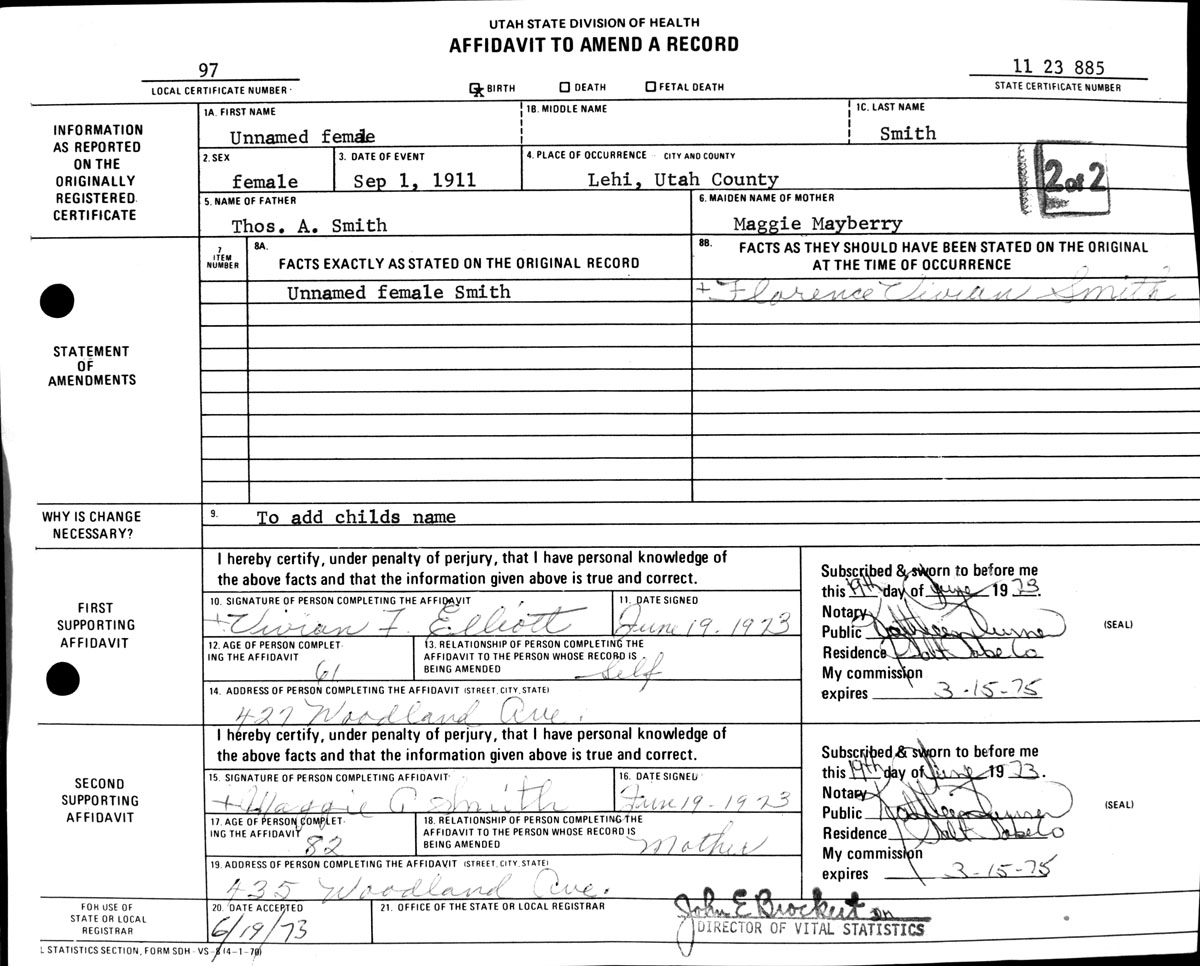 UTAH STATE DIVISION OF HEALTH
AFFIDAVIT TO AMEND A RECORD
97
LOCAL CERTIFICATE NUMBER
BIRTH
DEATH
FETAL DEATH
11 23 885
STATE CERTIFICATE NUMBER
INFORMATION
AS REPORTED
ON THE
ORIGINALLY
REGISTERED
CERTIFICATE
1A. FIRST NAME
Unnamed female
1B. MIDDLE NAME
1C. LAST NAME
Smith
2. SEX
female
3. DATE OF EVENT
Sep 1, 1911
4. PLACE OF OCCURRENCE - CITY AND COUNTY
Lehi, Utah County
2 of 2
5. NAME OF FATHER
Thos. A. Smith
6. MAIDEN NAME OF MOTHER
Maggie Mayberry
STATEMENT
OF
AMENDMENTS
7
ITEM
NUMBER
8A.
FACTS EXACTLY AS STATED ON THE ORIGINAL RECORD
8B. FACTS AS THEY SHOULD HAVE BEEN STATED ON THE ORIGINAL
AT THE TIME OF OCCURRENCE
Unnamed female Smith
+ Florence Vivian Smith
WHY IS CHANGE
NECESSARY?
9. To add childs name
FIRST
SUPPORTING
AFFIDAVIT
I hereby certify, under penalty of perjury, that I have personal knowledge of
the above facts and that the information given above is true and correct.
10. SIGNATURE OF PERSON COMPLETING THE AFFIDAVIT
+ Vivian F. Elliott
11. DATE SIGNED
June 19. 1973
12. AGE OF PERSON COMPLET-
ING THE AFFIDAVIT
61
13. RELATIONSHIP OF PERSON COMPLETING THE
AFFIDAVIT TO THE PERSON WHOSE RECORD IS
BEING AMENDED
Self
14. ADDRESS OF PERSON COMPLETING THE AFFIDAVIT (STREET, CITY, STATE)
427 Woodland Ave.
Subscribed & sworn to before me
this 19th day of June 1973.
Notary
Public
Residence Salt Lake Co
My commission
expires 3-15-75
(SEAL)
SECOND
SUPPORTING
AFFIDAVIT
I hereby certify, under penalty of perjury, that I have personal knowledge of
the above facts and that the information given above is true and correct.
15. SIGNATURE OF PERSON COMPLETING AFFIDAVIT
+ Maggie Smith
16. DATE SIGNED
June 19-1973
17. AGE OF PERSON COMPLET-
ING THE AFFIDAVIT
82
18. RELATIONSHIP OF PERSON COMPLETING THE
AFFIDAVIT TO THE PERSON WHOSE RECORD IS
BEING AMENDED
Mother
19. ADDRESS OF PERSON COMPLETING THE AFFIDAVIT (STREET, CITY, STATE)
435 Woodland Ave.
Subscribed & sworn to before me
this 19th day of June 1973.
Notary
Public
Residence Salt Lake Co
My commission
expires 3-15-75
(SEAL)
FOR USE OF
STATE OR LOCAL
REGISTRAR
20. DATE ACCEPTED
6/19/73
21. OFFICE OF THE STATE OR LOCAL REGISTRAR
John E Brockert
DIRECTOR OF VITAL STATISTICS
L STATISTICS SECTION, FORM SDH - VS -